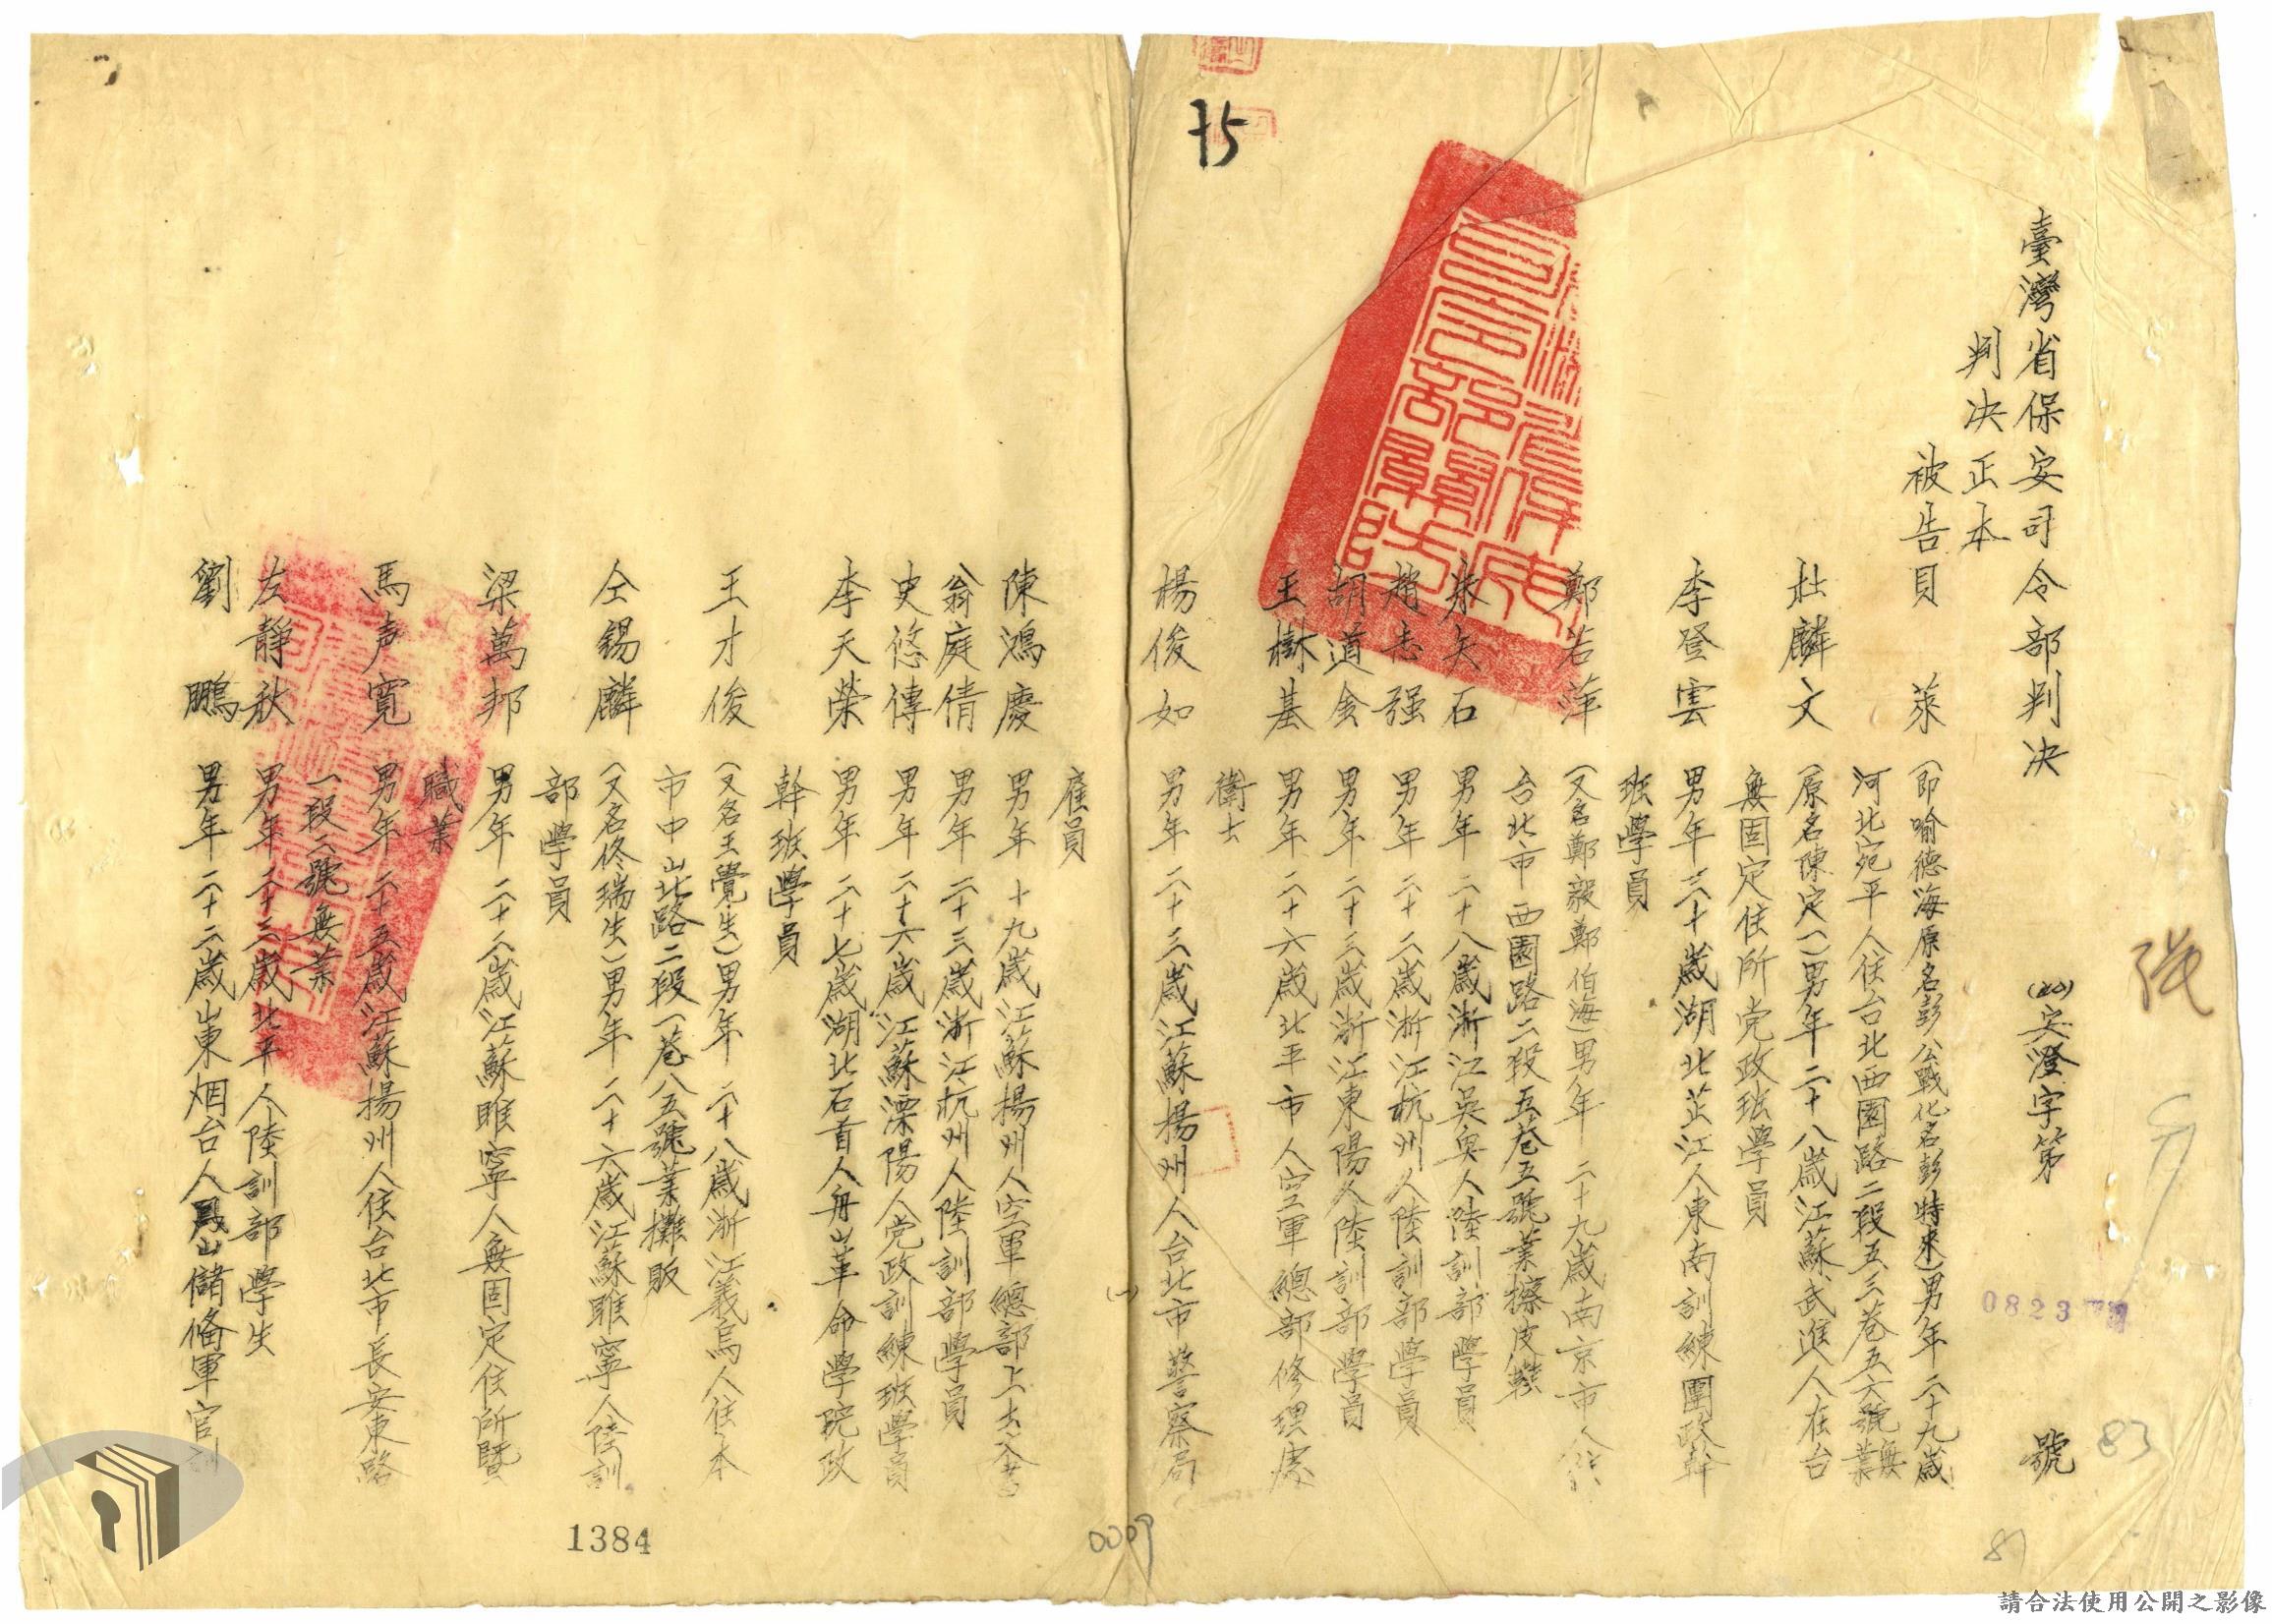 臺灣省保安司令部判決 安澄字第 號
判決正本
被告 貝萊 (即喻德海原名彭公戰化名彭特來)男年二十九歲
河北宛平人住台北西園路二段五三巷五六號無業
杜麟文 (原名陳定一)男年二十八歲江蘇武進人在台
無固定住所党政班學員
李登雲 男年三十歲湖北芷江人東南訓練團政幹
班學員
鄭若萍 (又名鄭毅鄭伯海)男年二十九歲南京市人住
台北市西園路二段五巷五號業擦皮鞋
朱矢石 男年二十八歲浙江吳興人陸訓部學員
趙志强 男年二十二歲浙江杭州人陸訓部學員
胡道會 男年二十三歲浙江東陽人陸訓部學員
王樹基 男年二十六歲北平市人空軍總部修理處
衛士
十5
楊俊如 男年二十三歲江蘇揚州人台北市警察局
(一)
雇員
陳鴻慶 男年十九歲江蘇揚州人空軍總部上士文書
翁庭倩 男年二十三歲浙江杭州人陸訓部學員
史悠傳 男年二十六歲江蘇溧陽人党政訓練班學員
李天榮 男年二十七歲湖北石首人舟山革命學院政
幹班學員
王才俊 (又名王覺生)男年二十八歲浙江義烏人住本
市中山北路二段一巷八五號業攤販
仝錫麟 (又名佟瑞生)男年二十六歲江蘇睢寧人陸訓
部學員
梁萬邦 男年二十八歲江蘇睢寧人無固定住所暨
職業
馬声寬 男年二十五歲江蘇揚州人住台北市長安東路
一段六號無業
左靜秋 男年二十三歲北平人陸訓部學生
劉鵬 男年二十二歲山東烟台人鳳山儲備軍官訓
0823
83
1384
0009
請合法使用公開之影像